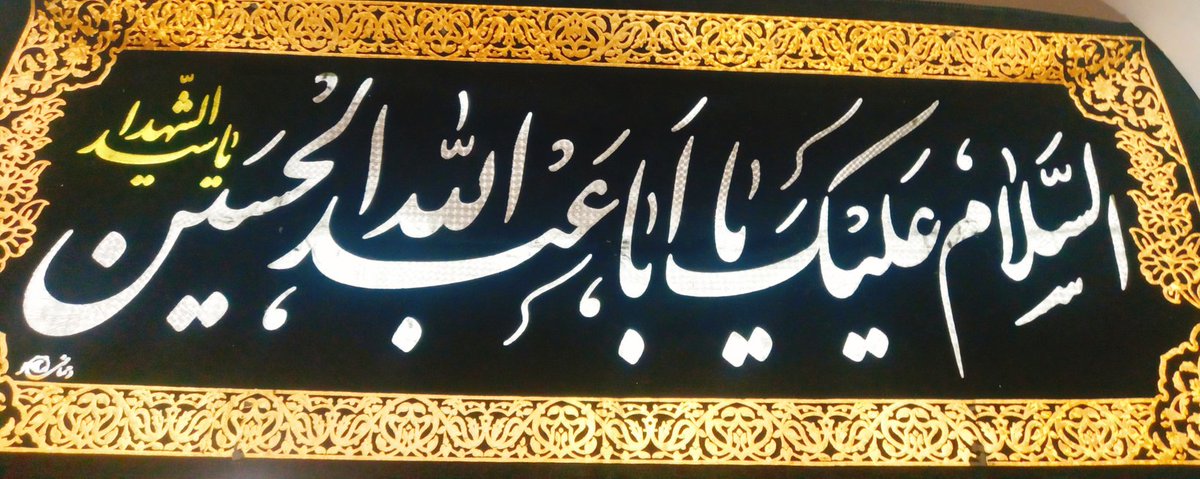 السَّلامُ عَلَیْکَ یا أَبا عَبْدِ اللّٰهِ الْحُسَیْن
یا سید الشّهدا